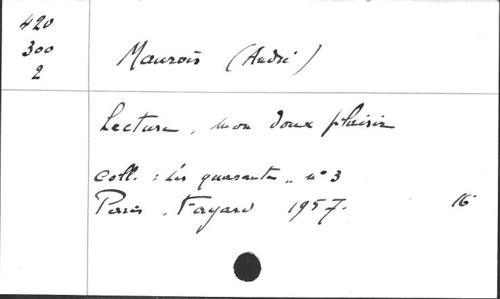 420
300
2
Maurois (André)
Lecture, mon doux plaisir
Coll. : Les quarante, n° 3
Paris, Fayard 1957. 16